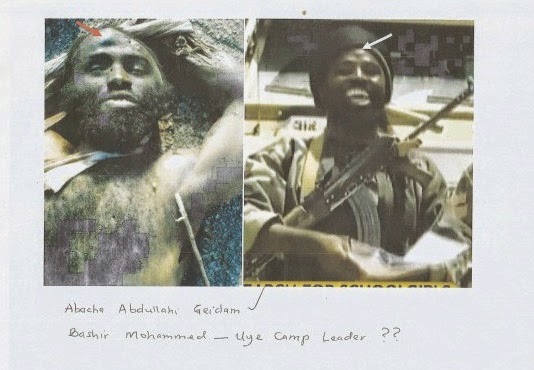 SIR
EARCH FOR SCHOOLGIRLS
Abacha Abdullahi Geidam
Bashir Mohammed — Uye Camp Leader ??